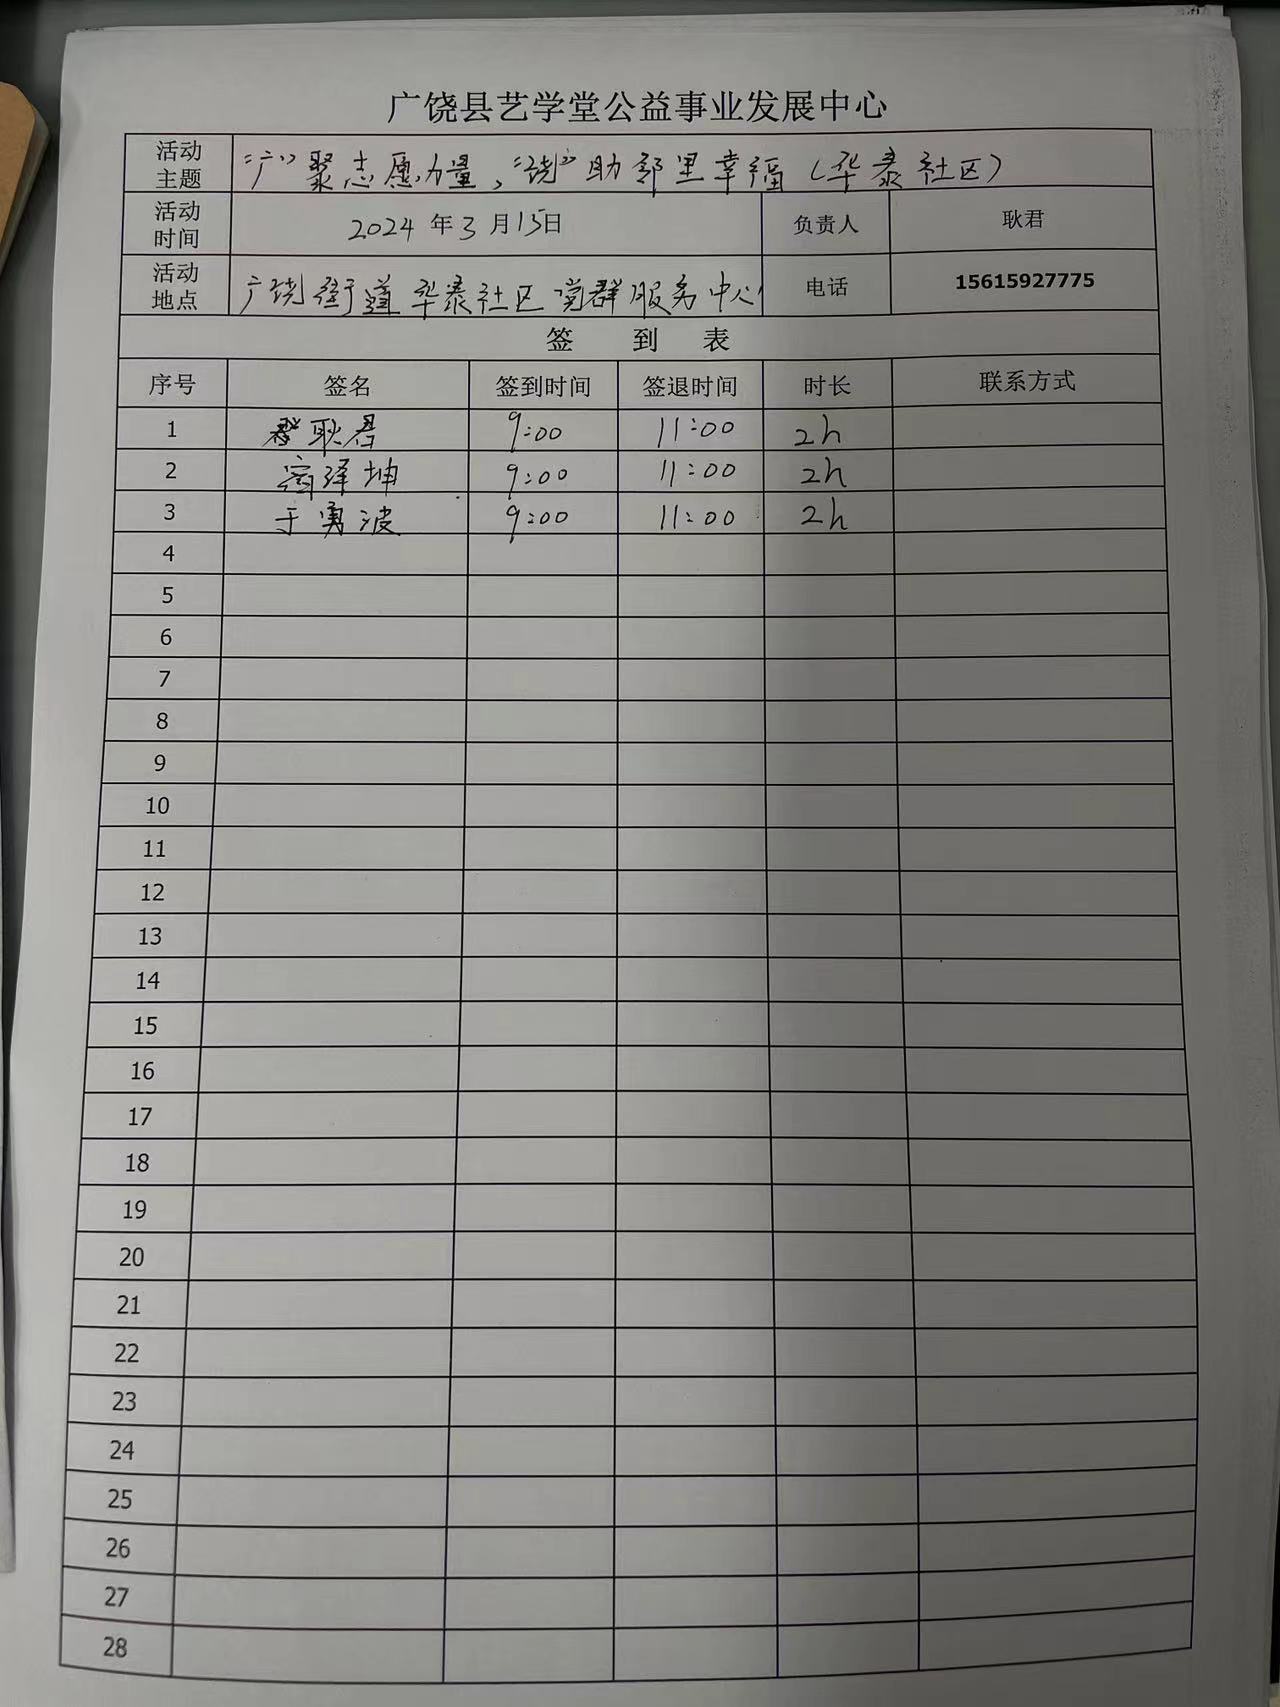 广饶县艺学堂公益事业发展中心
活动主题 “广”聚志愿力量，“饶”助邻里幸福（华泰社区）
活动时间 2024 年 3 月 15日 负责人 耿君
活动地点 广饶街道华泰社区党群服务中心 电话 15615927775
签 到 表
序号 签名 签到时间 签退时间 时长 联系方式
1 耿君 9:00 11:00 2h
2 泽坤 9:00 11:00 2h
3 于勇波 9:00 11:00 2h
4
5
6
7
8
9
10
11
12
13
14
15
16
17
18
19
20
21
22
23
24
25
26
27
28